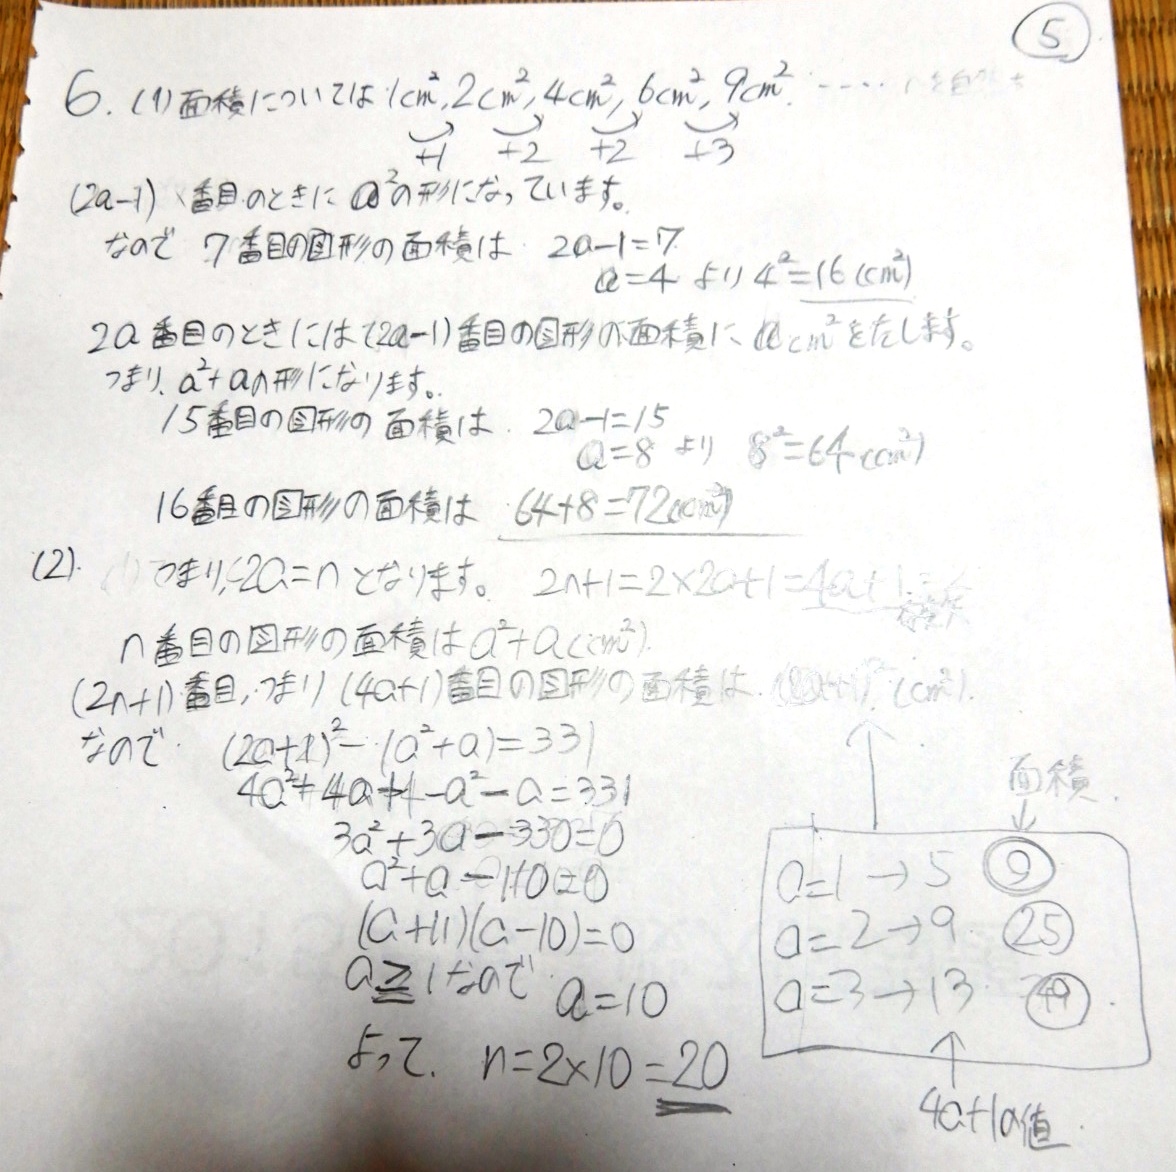 5
6. (1) 面積については 1cm², 2cm², 4cm², 6cm², 9cm². ‥‥
+1 +2 +2 +3
(2a-1) 番目のときに a²の形になっています。
なので 7番目の図形の面積は 2a-1=7
a=4 より 4²=16(cm²)
2a番目のときには(2a-1)番目の図形の面積に acm²をたします。
つまり、a²+aの形になります。
15番目の図形の面積は 2a-1=15
a=8 より 8²=64(cm²)
16番目の図形の面積は 64+8=72(cm²)
(2). つまり、2a=n となります。 2n+1=2×2a+1=4a+1
n番目の図形の面積は a²+a(cm²).
(2n+1)番目、つまり (4a+1)番目の図形の面積は (cm²).
なので (2a+1)²-(a²+a)=331
4a²+4a+1-a²-a=331
3a²+3a-330=0
a²+a-110=0
(a+11)(a-10)=0
a≧1なので a=10
よって. n=2×10=20
面積
a=1→5 9
a=2→9 25
a=3→13 49
4a+1の値